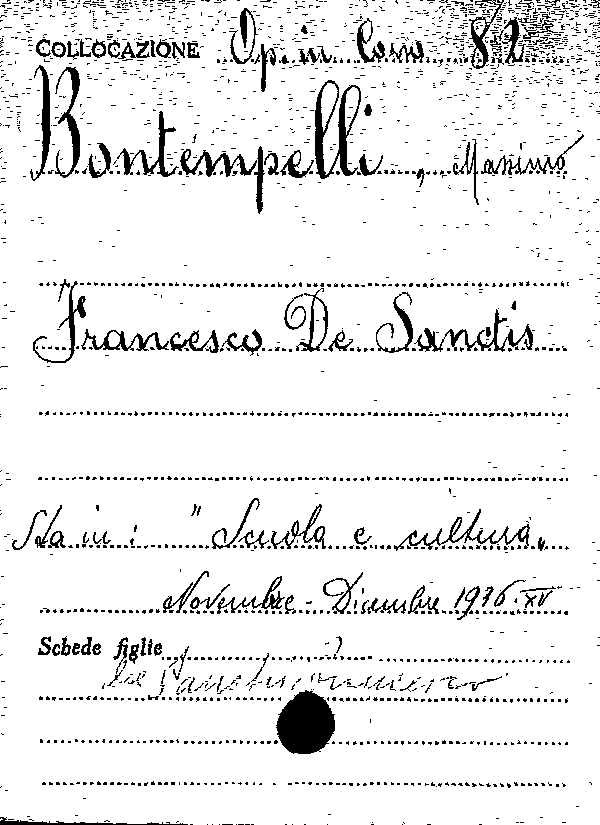 COLLOCAZIONE Op. in Cons 82
Bontempelli, Massimo
Francesco De Sanctis
Sta in: "Scuola e cultura"
Novembre - Dicembre 1936. XV
Schede figlie 2
De Sanctis Francesco